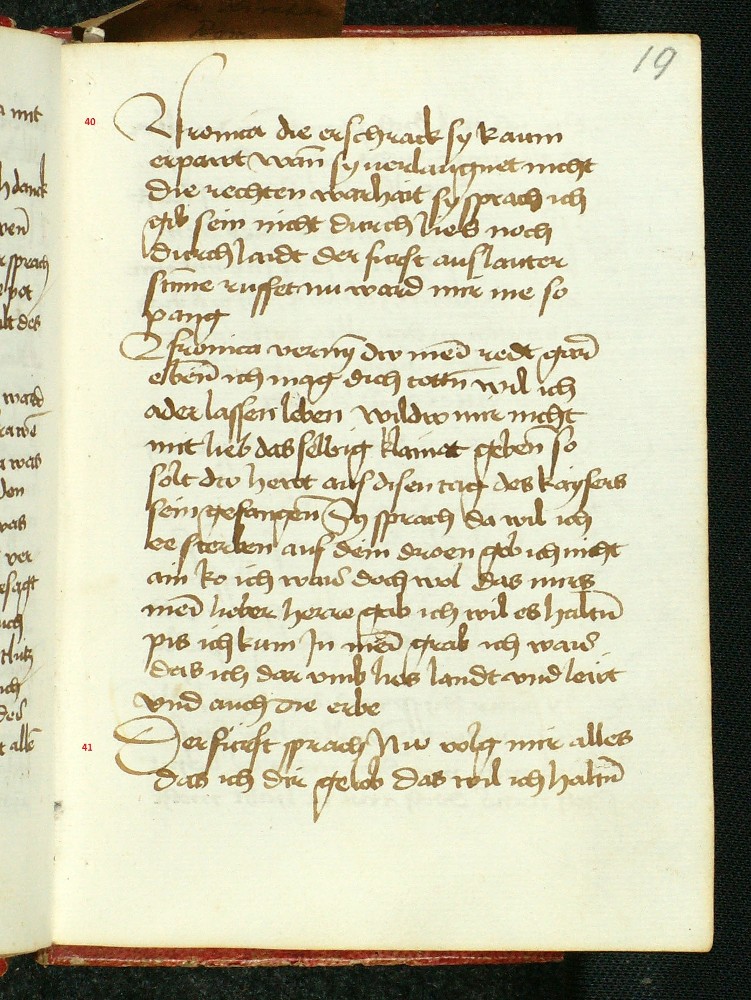 19
40
Vronica die erschrack sy kaum
erpartt wañ sy verlaugnet nicht
die rechten warhait sy sprach ich
gib sein nicht durch lieb noch
durch laidt der fürst aus lauter
stime ruffet nu ward mir nie so
pang
Vfronica vernym dw mei͂ redt gar
eben͂ ich mag dich tottn͂ wil ich
ader lassen leben wildw mir nicht
mit lieb das selbig klainat geben so
solt dw hewt auf disen tag des kaysers
sein gefangen͂ Sy sprach da wil ich
ee sterben auf dein droen gib ich nicht
ain ko ich wais doch wol das mirs
mei͂ lieber herre gab ich wil es haltn͂
pis ich kum In mei͂ grab ich wais
das ich dar vmb lies landt vnd leut
vnd auch die erbe
41
Der fürst sprach Nw volg mir alles
das ich dir gelob das wil ich haltn͂